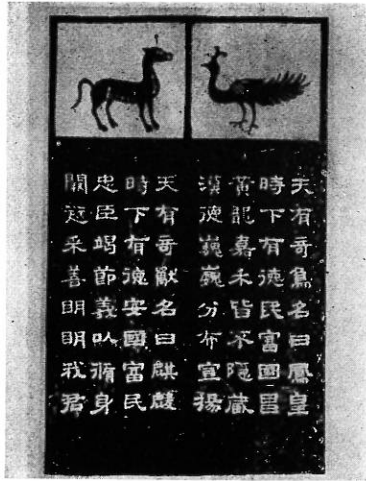 天有奇鳥名曰鳳皇
時下有德民富國昌
黃龍嘉禾皆不隱藏
漢德巍巍分布宣揚
天有奇獸名曰麒麟
時下有德安國富民
忠臣竭節義以脩身
闕采善明明我君